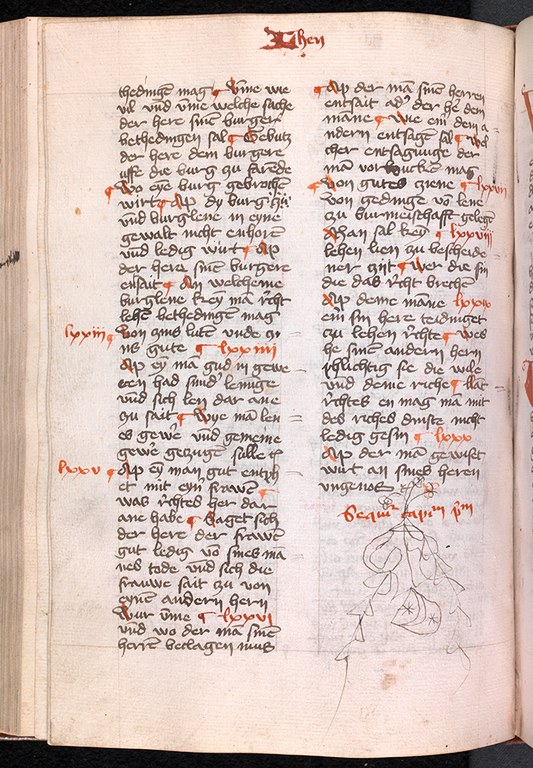 Lhen
thedingen mag ¶ Vm̄e wie
vil vnd vm̄e welche sache
der here sinen burger
bethedingen sal ¶ Gebutz
der here dem burgere
uffe die burg zu farēde
¶ Wo eyē burg gebrochen
wirt ¶ Ap dy burg
vnd burglene in eyne
gewalt nicht enhoren
vnd ledig wirt ¶ Ap
der here sinen burgere
ensait ¶ An welcheme
burglene krey mā r̄cht
lehen bethedingen mag
lxxiii ¶ Von zins luten vnde zi
ns gute ¶ lxxiiii
Ap ey mā gud in gewe
ren had
vnd sich len dar ane
zu sait ¶ Wye mā len
es gewe vnd gemeine
gewe gezuge sulle
lxxv ¶ Ap ey man gut entph
et mit eyn frawen ¶
was r̄chtes her dar
ane habe ¶ Saget sich
der here der frawē
gut ledig vō sines mā
nes tode vnd sich die
frauwe sait zu von
eynē andern hern
wur vm̄e ¶ lxxvi
vnd wo der mā sinen
herrē beclagen mus
¶ Ap der mā sinen herren
entsait adˀ der he dem
mane ¶ Wie ein dem a
ndern entsagē sal ¶ Wel
cher entsagunge der
mā vor mag
¶ Von gutes ziene ¶ lxxvii
von gedinge vō lene
zu burmeischafft gelegē
Man sal keyn ¶ lxxviii
lehen lien zu bescheide
ner zyt ¶ Wer die sin
die das r̄cht brechen
Ap deme mane lxxix
ein sin here teidinget
zu lehen r̄chte ¶ Wes
he sinen andern hern
phlichtig se die wile
vnd deme riche ¶ Nac
r̄chtes en mag mā mit
des riches dinste nicht
ledig gesin ¶ lxxx
Ap der mā gewist
wirt an sines heren
vngenos
Sequitˀ capm̄ pm̄